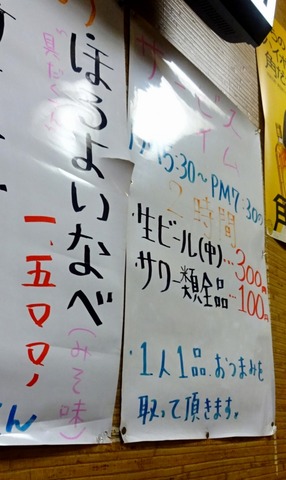 サービス
タイム
PM5:30～PM7:30の
2時間
・生ビール(中)…300円
・サワー類全品…100円
・1人1品、おつまみを
取って頂きます。
ほろよいなべ
(みそ味)
一、五〇〇、